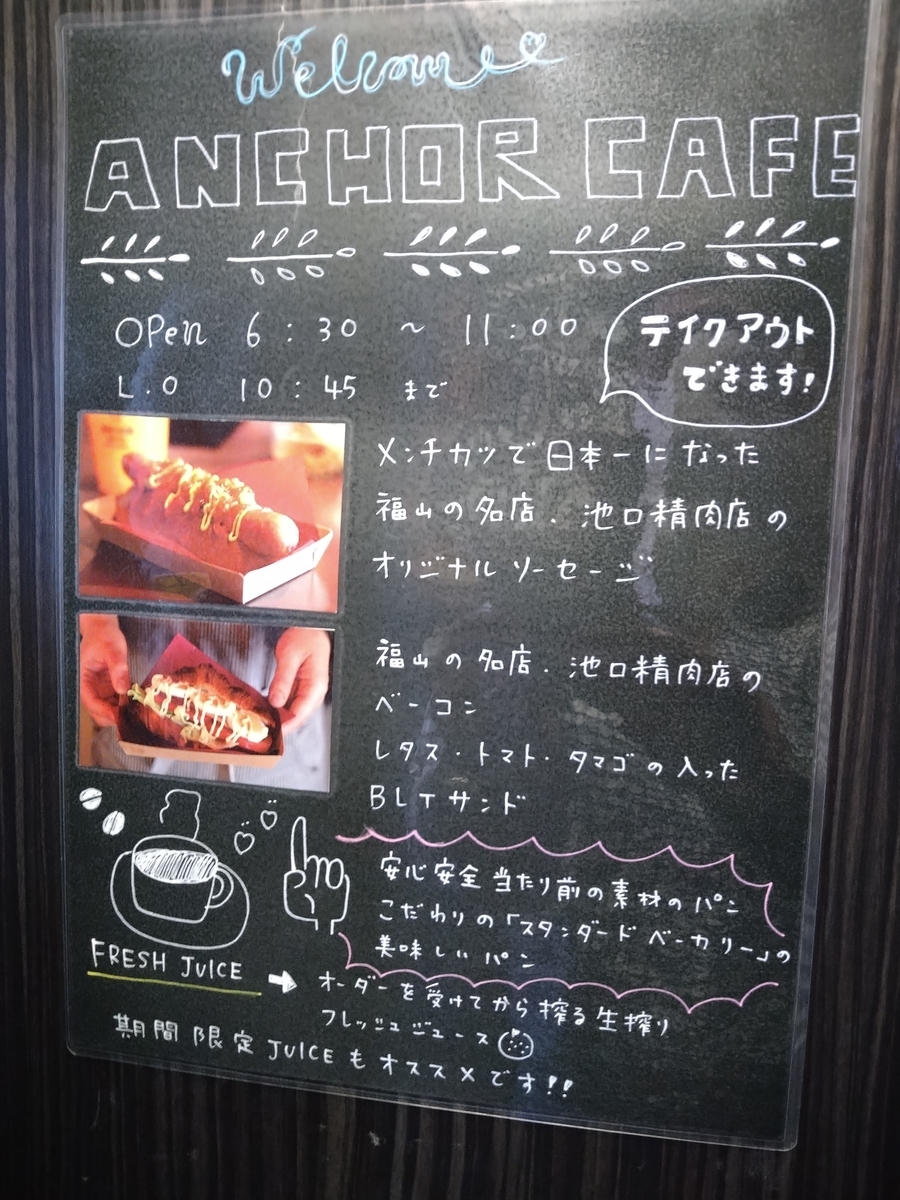 Welcome
ANCHOR CAFE
OPen 6:30 ~ 11:00
L.O 10:45 まで
テイクアウト
できます!
メンチカツで日本一になった
福山の名店.池口精肉店の
オリジナルソーセージ
福山の名店.池口精肉店の
ベーコン
レタス・トマト・タマゴの入った
BLTサンド
安心安全当たり前の素材のパン
こだわりの「スタンダードベーカリー」の
美味しいパン
FRESH JUICE
→ オーダーを受けてから搾る生搾り
フレッシュジュース
期間限定JUICEもオススメです!!